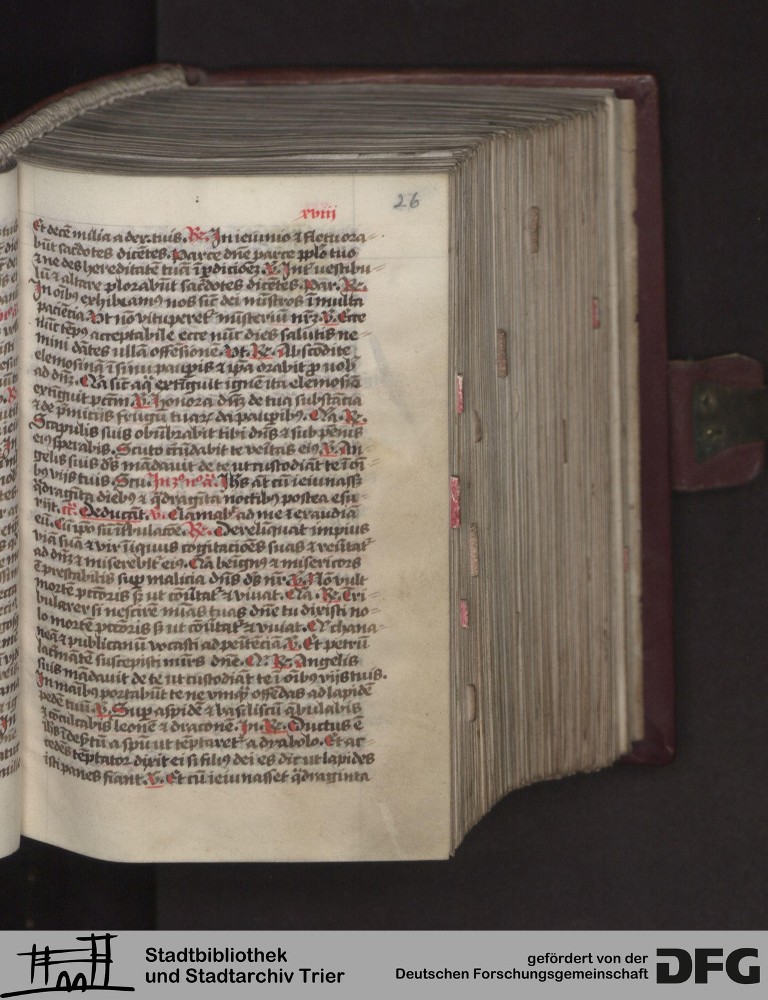 xviii
26
Et decē milia a dex. tuis. R. In ieiunio ⁊ fletu ora
būt sacdotes dicētes. Parce dn̄e parce pplo tuo
⁊ ne des hereditatē tuā ī pdicioēz. V. Int' vestibu
lū ⁊ altare plorabūt sacdotes dicētes. Par. R.
In oīb9 exhibeam9 nos sic̄ dei mīstros ī multa
paciēcia Vt nō vitupetet' misteriū nr̄z. V. Ecce
nūc tēp9 acceptabile ecce nūc dies salutis ne
mini dātes ullā offēsionē. Vt. R. Abscōdite
elemosinā ī sinu paupis ⁊ ip̄a orabit p vob
ad dn̄z. Na sic̄ aq̄ extīguit ignē ita elemosīa
extīguit pctm̄. V. Honora dn̄z de tua substācia
⁊ de p̄micijs frugū tuaꝝ da paupib9. Na. R.
Scapulis suis obūbrabit tibi dn̄s ⁊ sub pēnis
ei9 sperabis. Scuto cīrdabit te veritas ei9. V. An
gelis suis ds̄ mādavit de te ut custodiāt te ī oī
b9 vijs tuis. Scu. Ihs̄ at cū ieiunass;
q̄dragīta dieb9 ⁊ q̄dragīta noctib9 postea esu
rijt. Deducāt. V. Clamab' ad me ⁊ exaudiā
eū. Cū ip̄o sū ī tbulacōe. R. Derelīquat impius
viā suā ⁊ vir īiquus cogitacioēs suas ⁊ reūtat'
ad dn̄z ⁊ miserebit' ei9. Na beīgn9 ⁊ misericors
⁊ prestabilis sup malicia dn̄s ds̄ nr̄. V. Nō vult
mortē pctōris s; ut cōūtat' ⁊ vivat. Na. R. Tri
bularer si nescirē mīas tuas dn̄e tu dixisti no
lo mortē pctōris s; ut cōūtat' ⁊ vivat. Q' chana
neā ⁊ publicanū vocasti ad penitēciā. V. Et petrū
lacrimātē suscepisti mīrs dn̄e. Q'. R. Angelis
suis mādavit de te ut custodiāt te ī oīb9 vijs tuis.
In manib9 portabūt te ne vnq̄ offēdas ad lapidē
pedē tuū. V. Sup aspidē ⁊ basiliscū ābulabis
⁊ cōculcabis leonē ⁊ draconē. In. R. Ductus ē
ihs̄ ī desertū a spū ut tēptaret' a dyabolo. Et ac
cedēs tēptator dixit ei si fili9 dei es dic ut lapides
isti panes fiant. V. Et cū ieiunasset q̄draginta
Stadtbibliothek
und Stadtarchiv Trier
gefördert von der
Deutschen Forschungsgemeinschaft
DFG